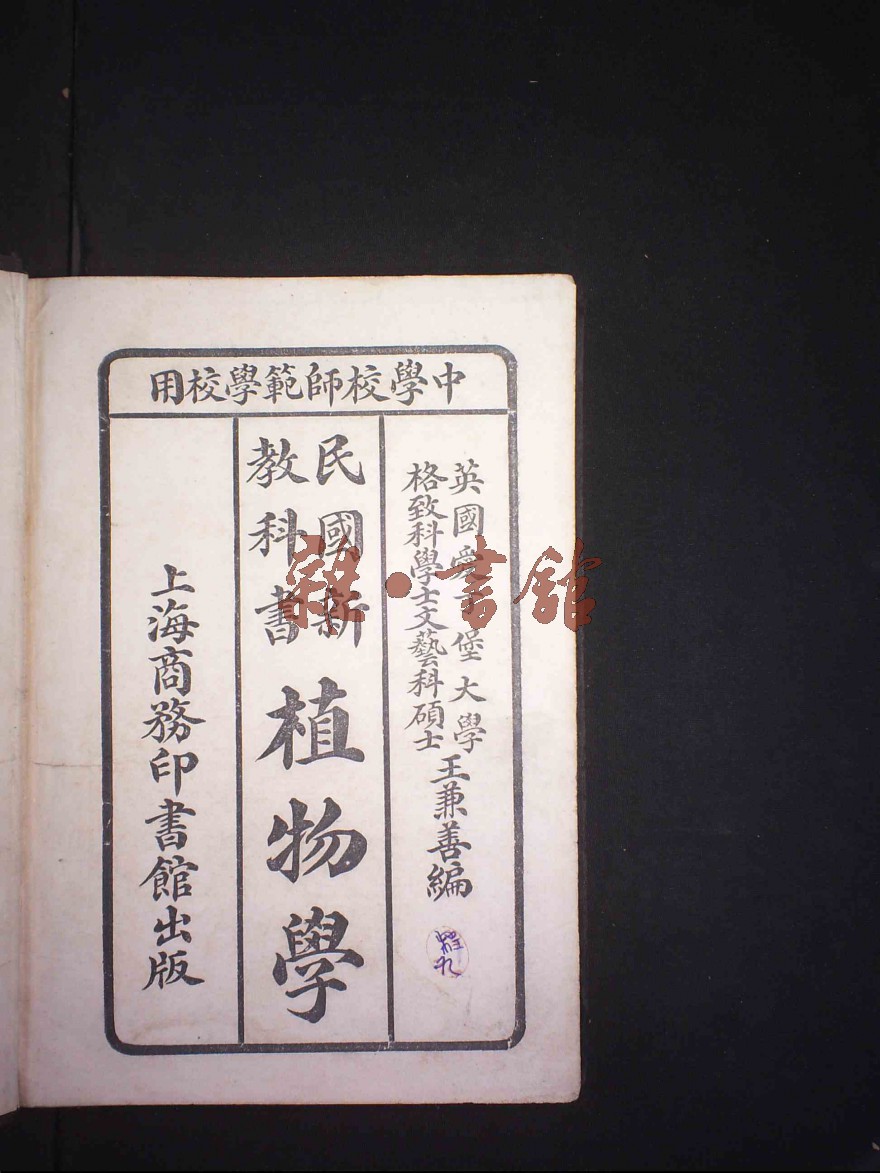 中學校師範學校用
英國愛丁堡大學
格致科學士文藝科碩士
王兼善編
民國新
教科書
植物學
上海商務印書館出版
書館